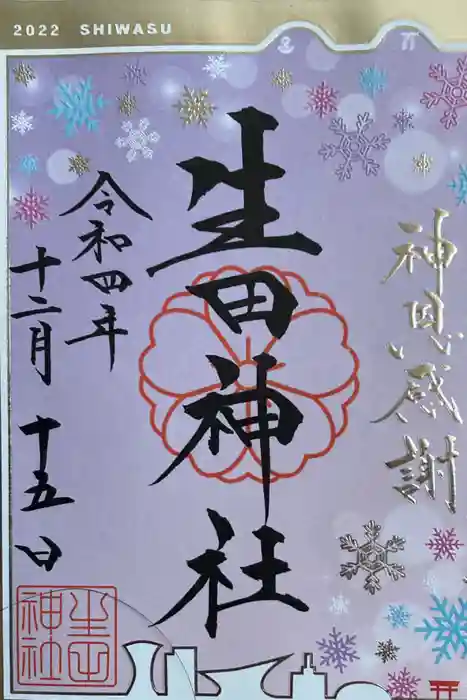 2022 SHIWASU
神恩感謝
生田神社
令和四年
十二月十五日
生田神社